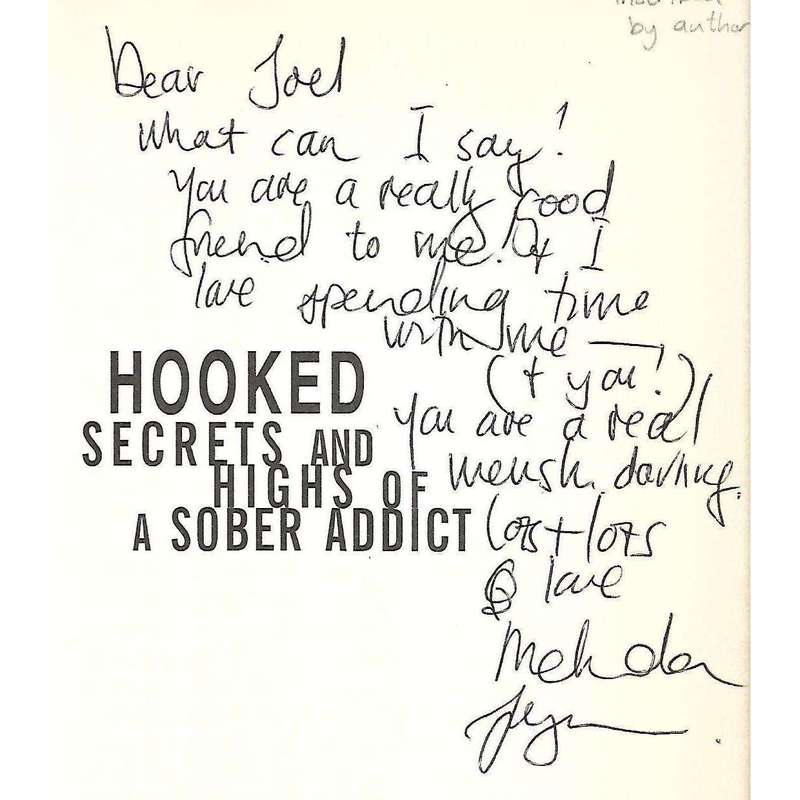 by author
Dear Joel
What can I say!
You are a really good
friend to me! & I
love spending time
with me —
(+ you!)
HOOKED
SECRETS AND
HIGHS OF
A SOBER ADDICT
you are a real
mensh. darling.
Lots + lots
love
Melinda